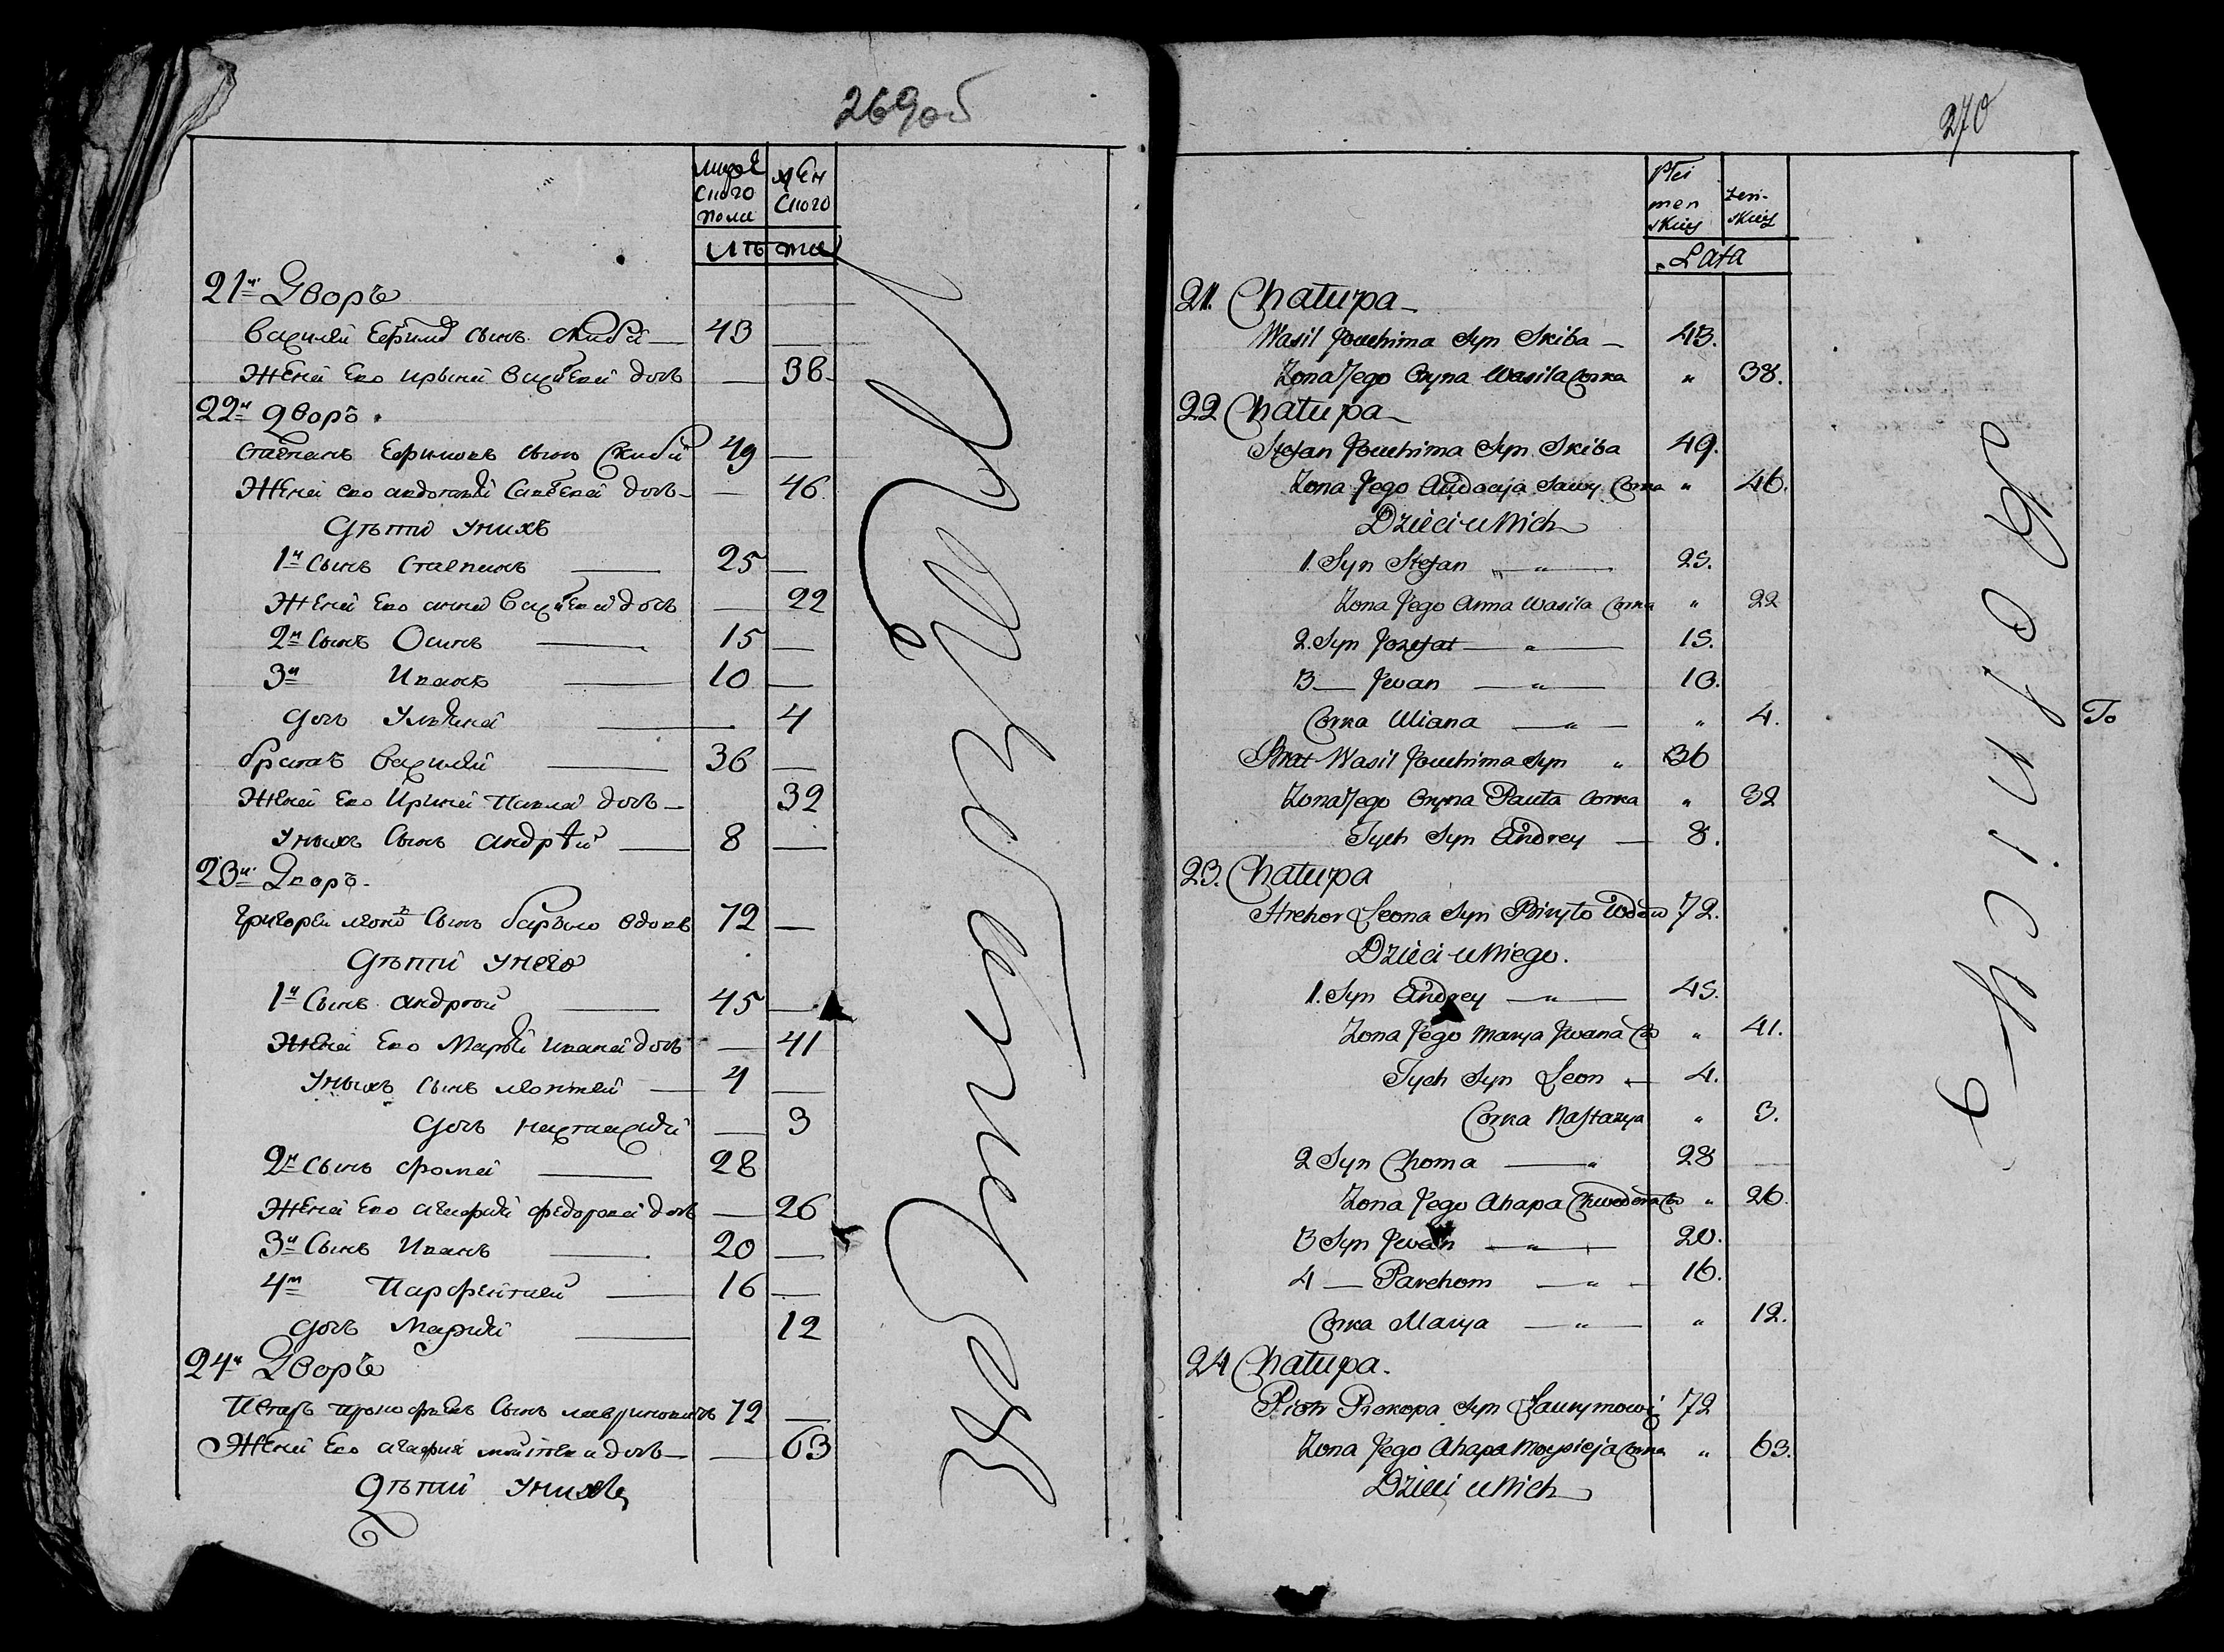 269об
мужескаго пола
женскаго
лѣта
21й Дворъ
Василей Ефима сынъ Скиба 43
Жена его Ирына Василева дочь 38
22й дворъ
Степанъ Ефимовъ сынъ Скиба 49
Жена его Авдотья Савева дочь 46
Дѣти у нихъ
1й сынъ Степанъ 25
Жена его Анна Василева дочь 22
2й сынъ Осипъ 15
3й Иванъ 10
дочь Ульяна 4
братъ Василей 36
Жена его Ирина Павла дочь 32
у ныхъ сынъ Андрѣй 8
23й Дворъ
Григорей сынъ вдовъ 72
Дѣти у него
1й сынъ Андрѣй 45
Жена его Марья Ивана дочь 41
у ныхъ сынъ 4
дочь Настасия 3
2й сынъ Фома 28
Жена его Агафия Федорова дочь 26
3й сынъ Иванъ 20
4й Парфентей 16
дочь Мария 12
24й Дворъ
Петръ Прокофьевъ сынъ 72
Жена его Агафия дочь 63
Дѣти у нихъ
270
Płci męnskiey
żenskiey
Lata
21. Chałupa
Wasil Jouchima Syn Skiba 43.
Żona Jego Oryna Wasila Corka " 38.
22 Chałupa
Stefan Jouchima Syn Skiba 49.
Żona Jego Audocia Sawy Corka " 46.
Dzieci u Nich
1. Syn Stefan " 25.
Żona Jego Anna Wasila Corka " 22
2. Syn Jozefat " 15.
3 Jwan " 10.
Corka Uliana " " 4.
Brat Wasil Jouchima Syn " 36
Żona Jego Oryna Pauła Corka " 32
Tych Syn Andrey 8.
23. Chałupa
Hrehor Leona Syn Wdow 72.
Dzieci u Niego.
1. Syn Andrey " 45.
Żona Jego Marya Jwana Co " 41.
Tych Syn Leon 4.
Corka Nastazya " 3.
2 Syn Choma " 28
Żona Jego Ahapa Chwedora Co " 26.
3 Syn Jwan " 20.
4 Parchom " 16.
Corka Marya " " 12.
24 Chałupa.
Piotr Prokopa Syn Ławrynowicz 72
Żona Jego Ahapa Moysieja Corka " 63.
Dzieci u Nich
To